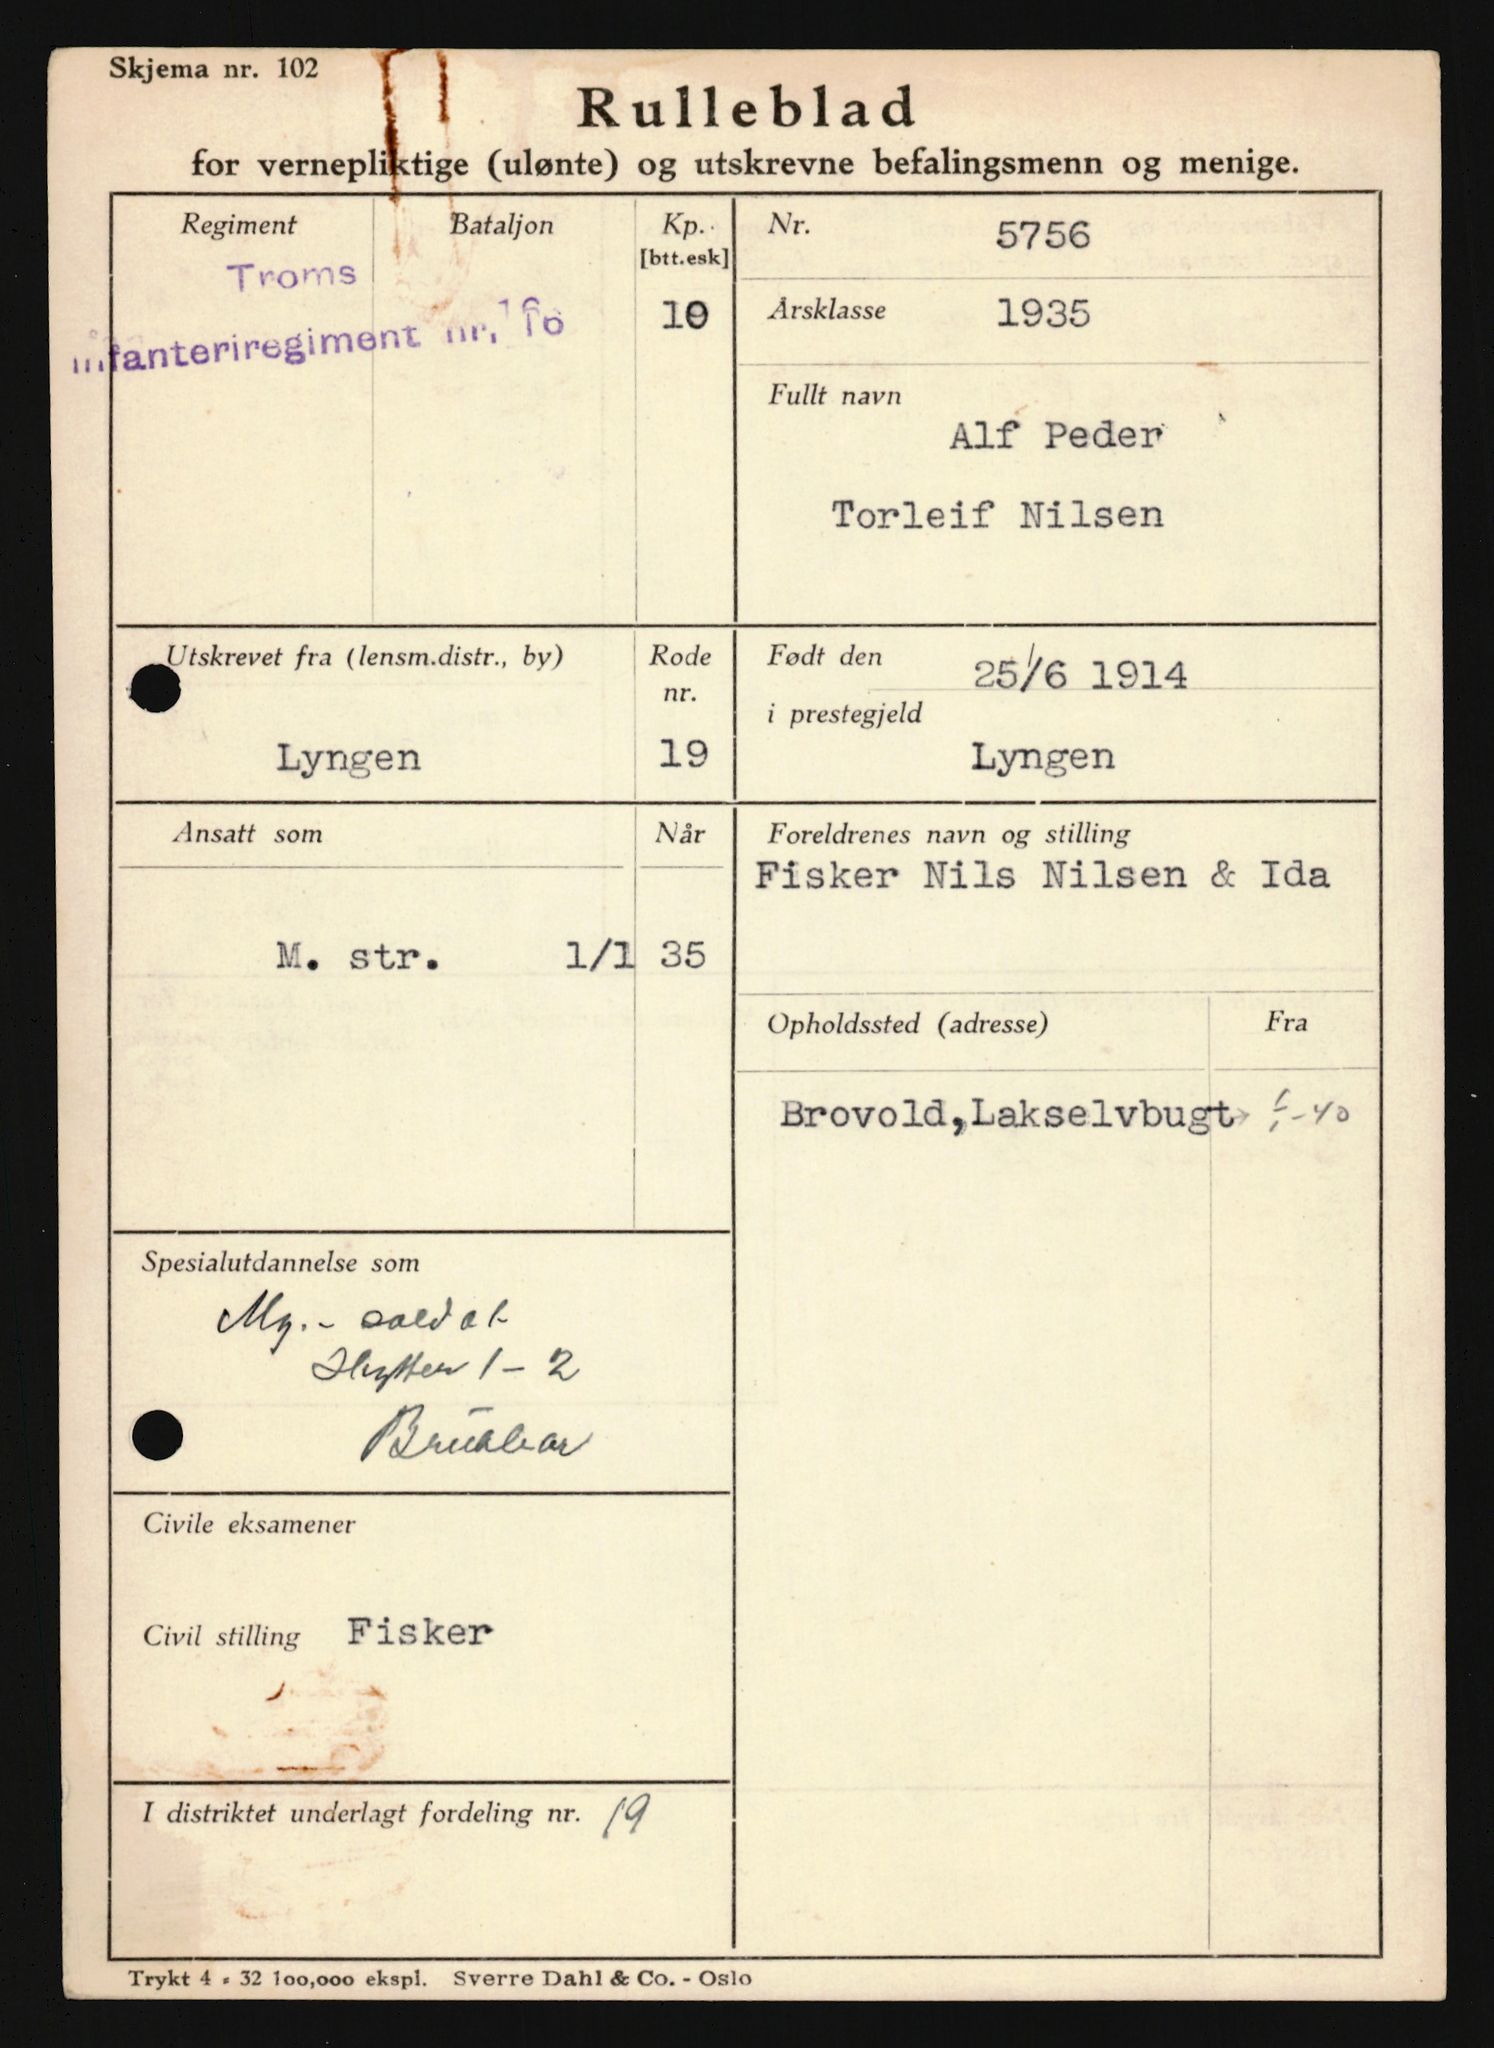 Skjema nr. 102
Rulleblad
for vernepliktige (ulønte) og utskrevne befalingsmenn og menige.
Regiment
Bataljon
Kp.
[btt.esk]
Troms
Infanteriregiment nr. 16
10
Nr. 5756
Årsklasse 1935
Fullt navn
Alf Peder
Torleif Nilsen
Utskrevet fra (lensm.distr., by)
Rode
nr.
Lyngen
19
Født den 25/6 1914
i prestegjeld
Lyngen
Ansatt som
Når
M. str. 1/1 35
Foreldrenes navn og stilling
Fisker Nils Nilsen & Ida
Opholdssted (adresse)
Fra
Brovold, Lakselvbugt -40
Spesialutdannelse som
Mg.- soldat
Skytter 1-2
Brukbar
Civile eksamener
Civil stilling Fisker
I distriktet underlagt fordeling nr. 19
Trykt 4 - 32 100,000 ekspl. Sverre Dahl & Co. - Oslo